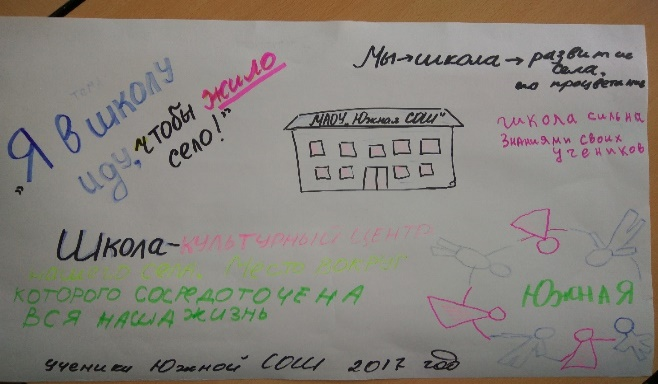 "Я в школу
иду, чтобы жило
село!"
Мы → школа → развитие
села,
его процветание
МАОУ "Южная СОШ"
школа сильна
знаниями своих
учеников
Школа - культурный центр
нашего села. Место вокруг
которого сосредоточена
вся наша жизнь
ЮЖНАЯ
ученики Южной СОШ 2017 год